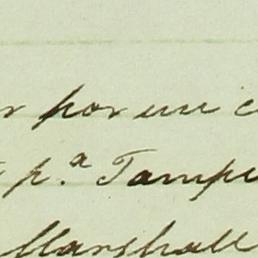 r por un c
p.ª Tampi
Marshall